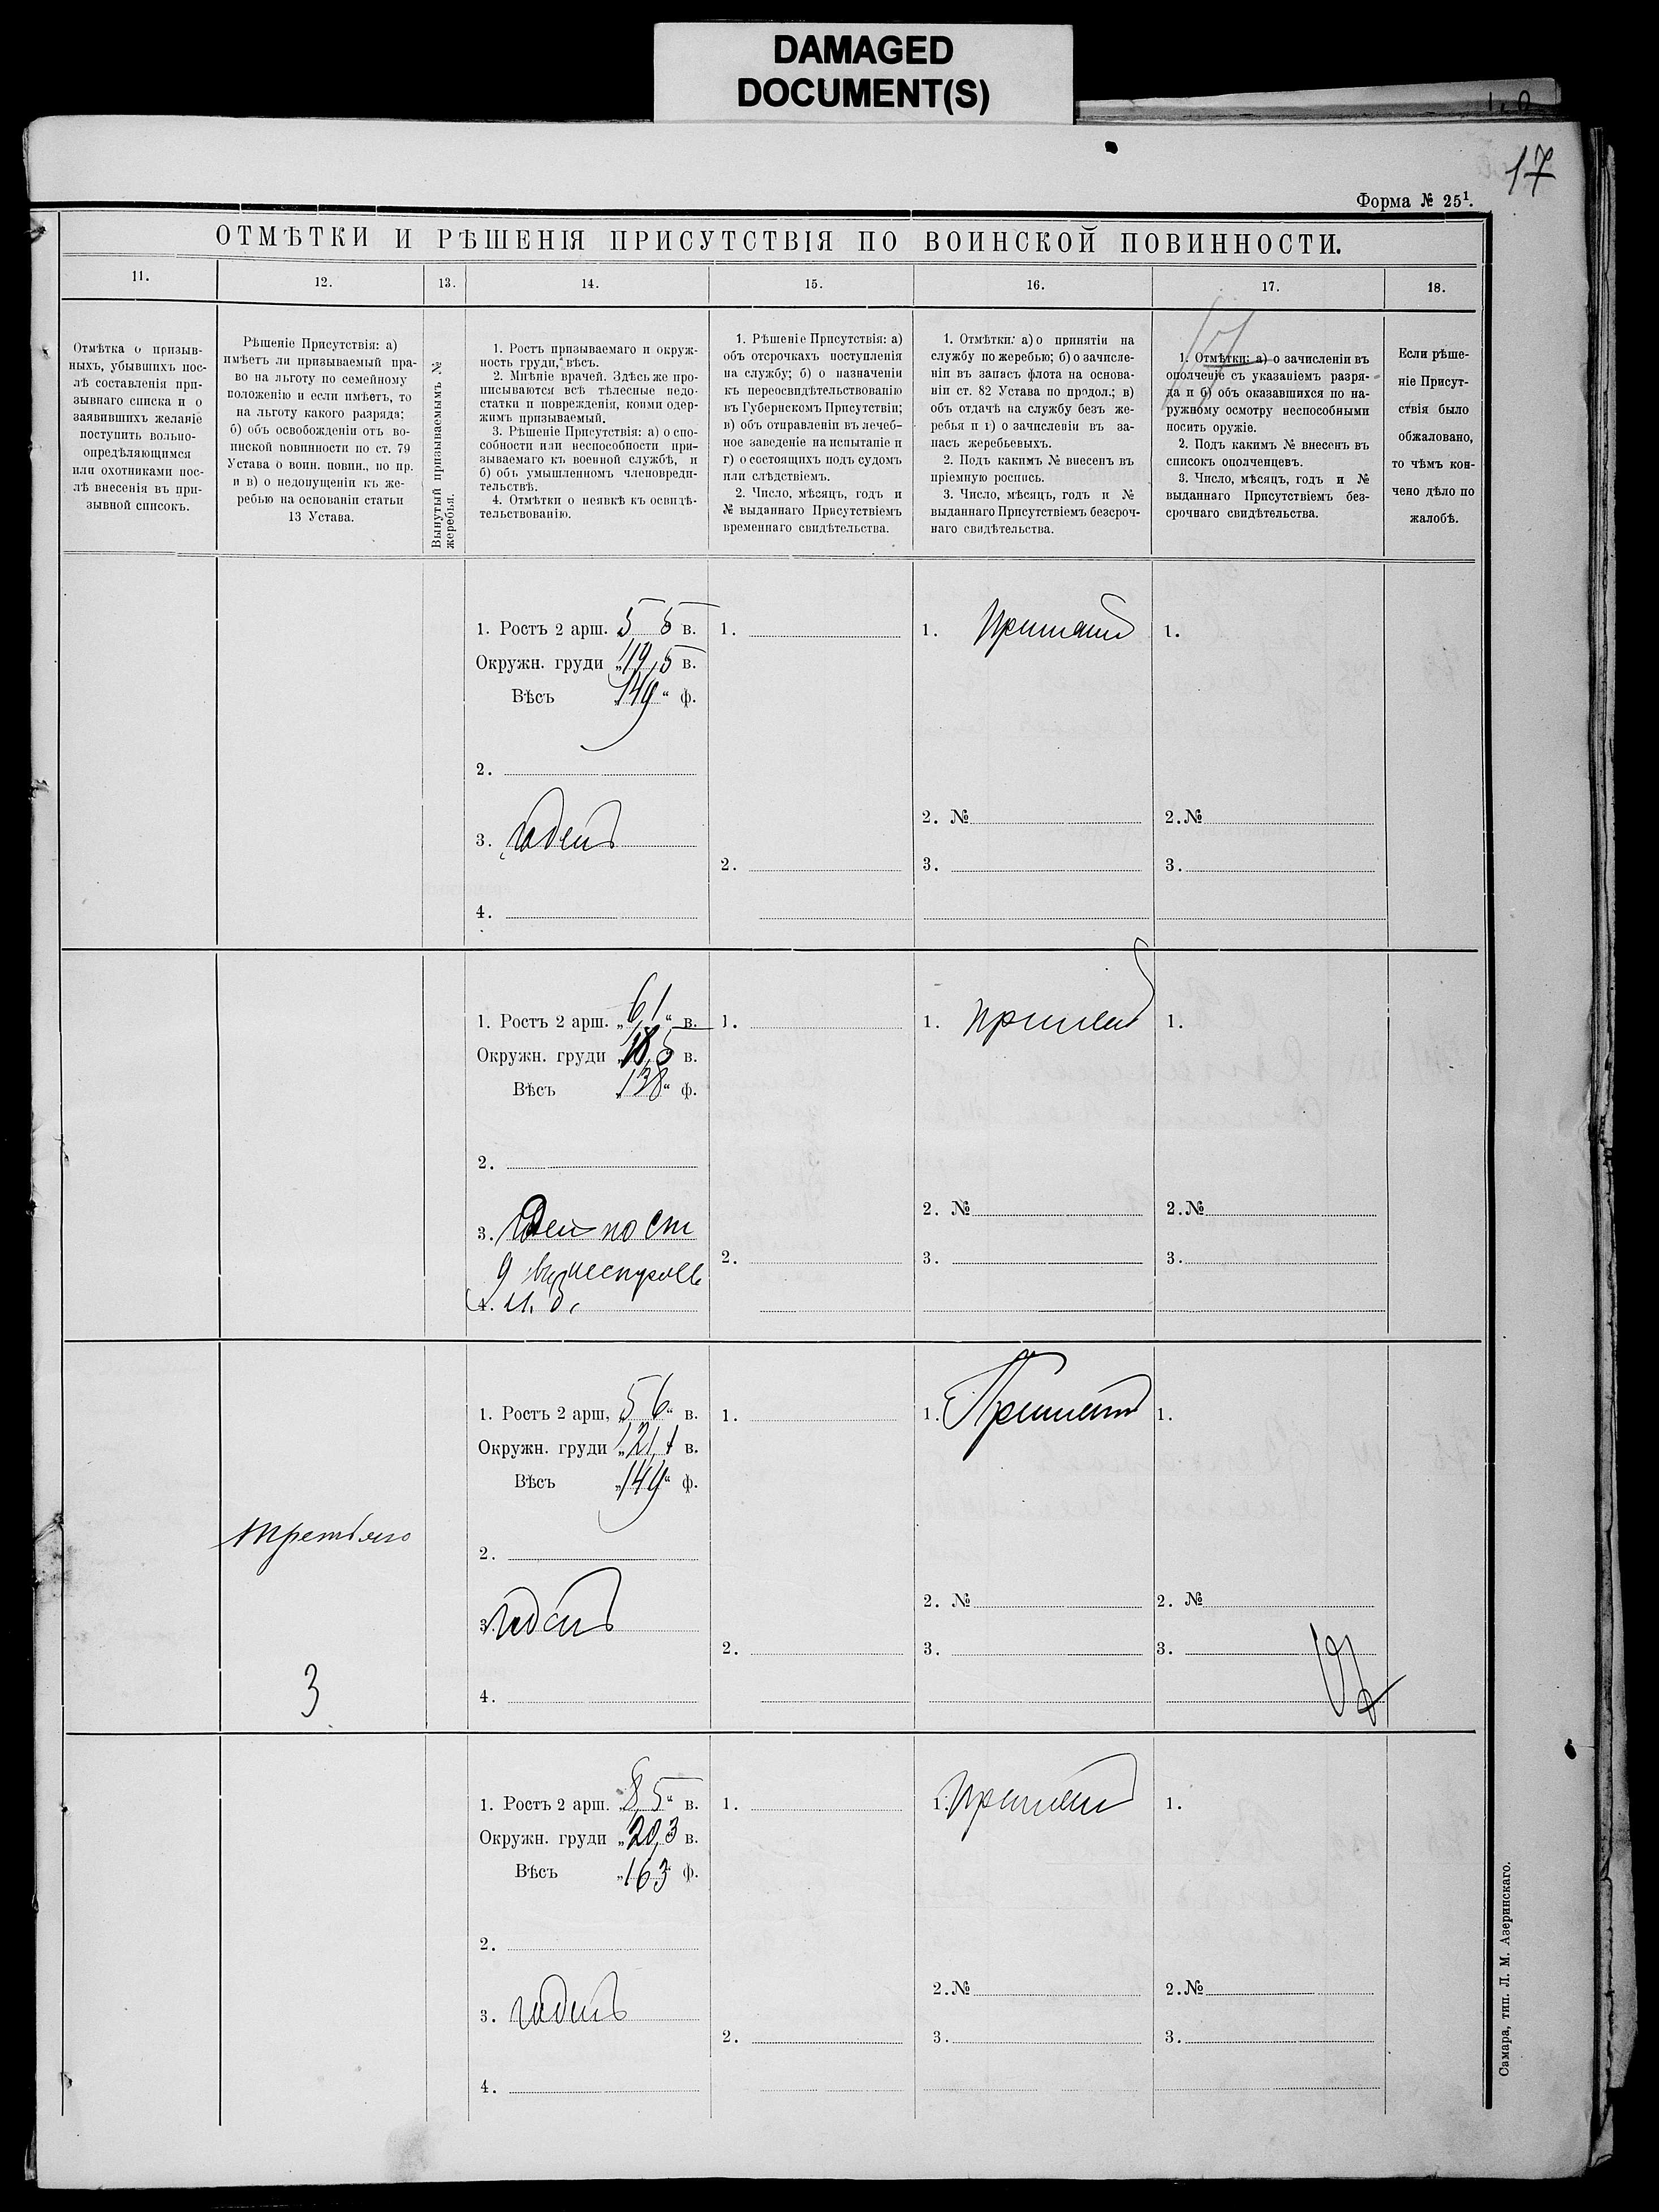 DAMAGED
DOCUMENT(S)
17
Форма № 25¹.
ОТМѢТКИ И РѢШЕНІЯ ПРИСУТСТВІЯ ПО ВОИНСКОЙ ПОВИННОСТИ.
11. 12. 13. 14. 15. 16. 17. 18.
Отмѣтка о призыв-
ныхъ, убывшихъ пос-
лѣ составленія при-
зывнаго списка и о
заявившихъ желаніе
поступить вольно-
опредѣляющимся
или охотниками пос-
лѣ внесенія въ при-
зывной списокъ.
Рѣшеніе Присутствія: а)
имѣетъ ли призываемый пра-
во на льготу по семейному
положенію и если имѣетъ, то
на льготу какого разряда;
б) объ освобожденіи отъ во-
инской повинности по ст. 79
Устава о воин. повин., по пр.
и в) о недопущеніи къ же-
ребью на основаніи статьи
13 Устава.
Вынутый призываемымъ №
жеребья.
1. Ростъ призываемаго и окруж-
ность груди, вѣсъ.
2. Мнѣніе врачей. Здѣсь же про-
писываются всѣ тѣлесные недо-
статки и поврежденія, коими одер-
жимъ призываемый.
3. Рѣшеніе Присутствія: а) о спо-
собности или неспособности при-
зываемаго къ военной службѣ, и
б) объ умышленномъ членовреди-
тельствѣ.
4. Отмѣтки о неявкѣ къ освидѣ-
тельствованію.
1. Рѣшеніе Присутствія: а)
объ отсрочкахъ поступленія
на службу; б) о назначеніи
къ переосвидѣтельствованію
въ Губернскомъ Присутствіи;
в) объ отправленіи въ лечеб-
ное заведеніе на испытаніе и
г) о состоящихъ подъ судомъ
или слѣдствіемъ.
2. Число, мѣсяцъ, годъ и
№ выданнаго Присутствіемъ
временнаго свидѣтельства.
1. Отмѣтки: а) о принятіи на
службу по жеребью; б) о зачисле-
ніи въ запасъ флота на основа-
ніи ст. 82 Устава по продол.; в)
объ отдачѣ на службу безъ же-
ребья и г) о зачисленіи въ за-
пасъ жеребьевыхъ.
2. Подъ какимъ № внесенъ въ
пріемную роспись.
3. Число, мѣсяцъ, годъ и №
выданнаго Присутствіемъ безсроч-
наго свидѣтельства.
1. Отмѣтки: а) о зачисленіи въ
ополченіе съ указаніемъ разря-
да и б) объ оказавшихся по на-
ружному осмотру неспособными
носить оружіе.
2. Подъ какимъ № внесенъ въ
списокъ ополченцевъ.
3. Число, мѣсяцъ, годъ и №
выданнаго Присутствіемъ без-
срочнаго свидѣтельства.
Если рѣше-
ніе Присут-
ствія было
обжаловано,
то чѣмъ кон-
чено дѣло по
жалобѣ.
1. Ростъ 2 арш. 5 5 в. 1. 1. Принятъ 1.
Окружн. груди „19,5 в.
Вѣсъ „149“ ф.
2.
2. № 2.№
3. годенъ
2. 3. 3.
4.
1. Ростъ 2 арш. „6,1“ в. 1. 1. принятъ 1.
Окружн. груди „18,5 в.
Вѣсъ „138“ ф.
2.
2. № 2.№
3. годен по ст
2. 3. 3.
9
4.
1. Ростъ 2 арш, „5 6“ в. 1. 1. Принятъ 1.
Окружн. груди „21,1 в.
Вѣсъ „149“ ф.
третьяго
2.
2. № 2. №
3. годенъ
2. 3. 3.
3
4.
1. Ростъ 2 арш. „8,5“ в. 1. 1. принятъ 1.
Окружн. груди „20,3 в.
Вѣсъ „163“ ф.
2.
2.№ 2.№
3. годенъ
2. 3. 3.
4.
Самара, тип. Л. М. Азеринскаго.